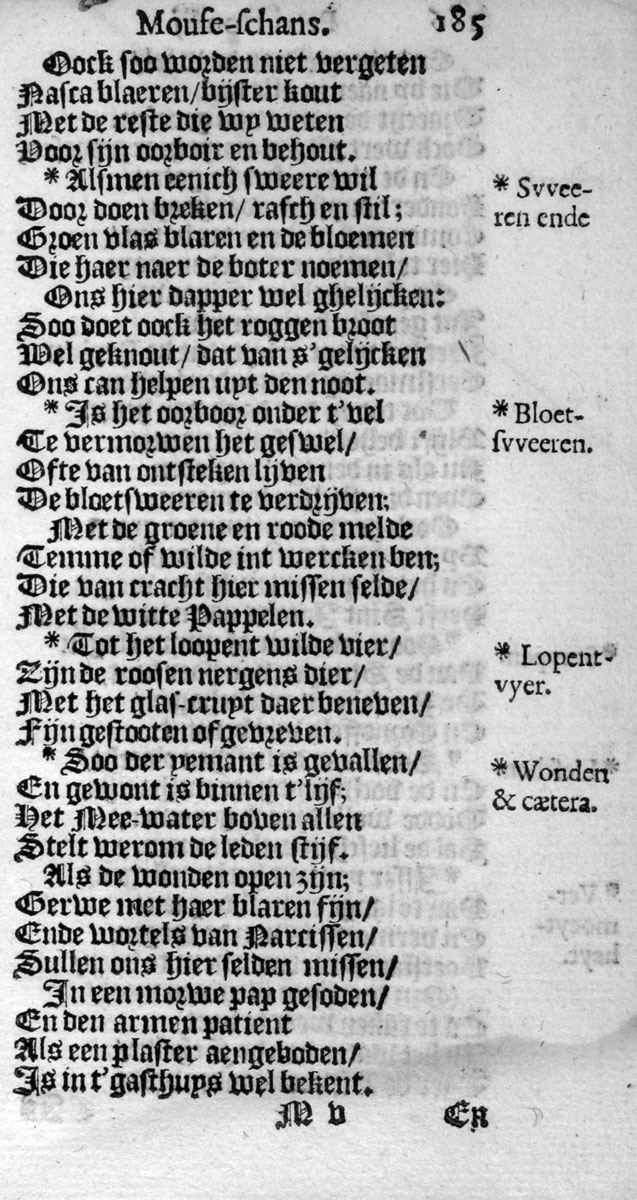 Mouse-schans. 185
Oock soo worden niet vergeten
Nasca blaeren/bijster kout
Met de reste die wy weten
Door sijn oorboir en behout.
* Alsmen eenich sweere wil
Door doen breken/ rasch en stil;
Groen vlas blaren en de bloemen
Die haer naer de boter noemen/
Ons hier dapper wel ghelijcken:
Soo doet oock het roggen broot
Wel geknout/ dat van s'gelijcken
Ons can helpen uyt den noot.
* Is het oorboor onder t'vel
Te vermorwen het geswel/
Ofte van ontsteken lijven
De bloetsweeren te verdrijven;
Met de groene en roode melde
Temme of wilde int wercken ben;
Die van cracht hier missen selde/
Met de witte Pappelen.
* Tot het loopent wilde vier/
Zijn de roosen nergens dier/
Met het glas-cruyt daer beneven/
Fijn gestooten of gevreven.
* Soo der yemant is gevallen/
En gewont is binnen t'lijf;
Het Mee-water boven allen
Stelt werom de leden stijf.
Als de wonden open zijn;
Gerwe met haer blaren fijn/
Ende wortels van Narcissen/
Sullen ons hier selden missen/
In een morwe pap gesoden/
En den armen patient
Als een plaster aengeboden/
Is in t'gasthuys wel bekent.
M v En
* Svvee-
ren ende
* Bloet-
svveeren.
* Lopent-
vyer.
* Wonden
& cætera.